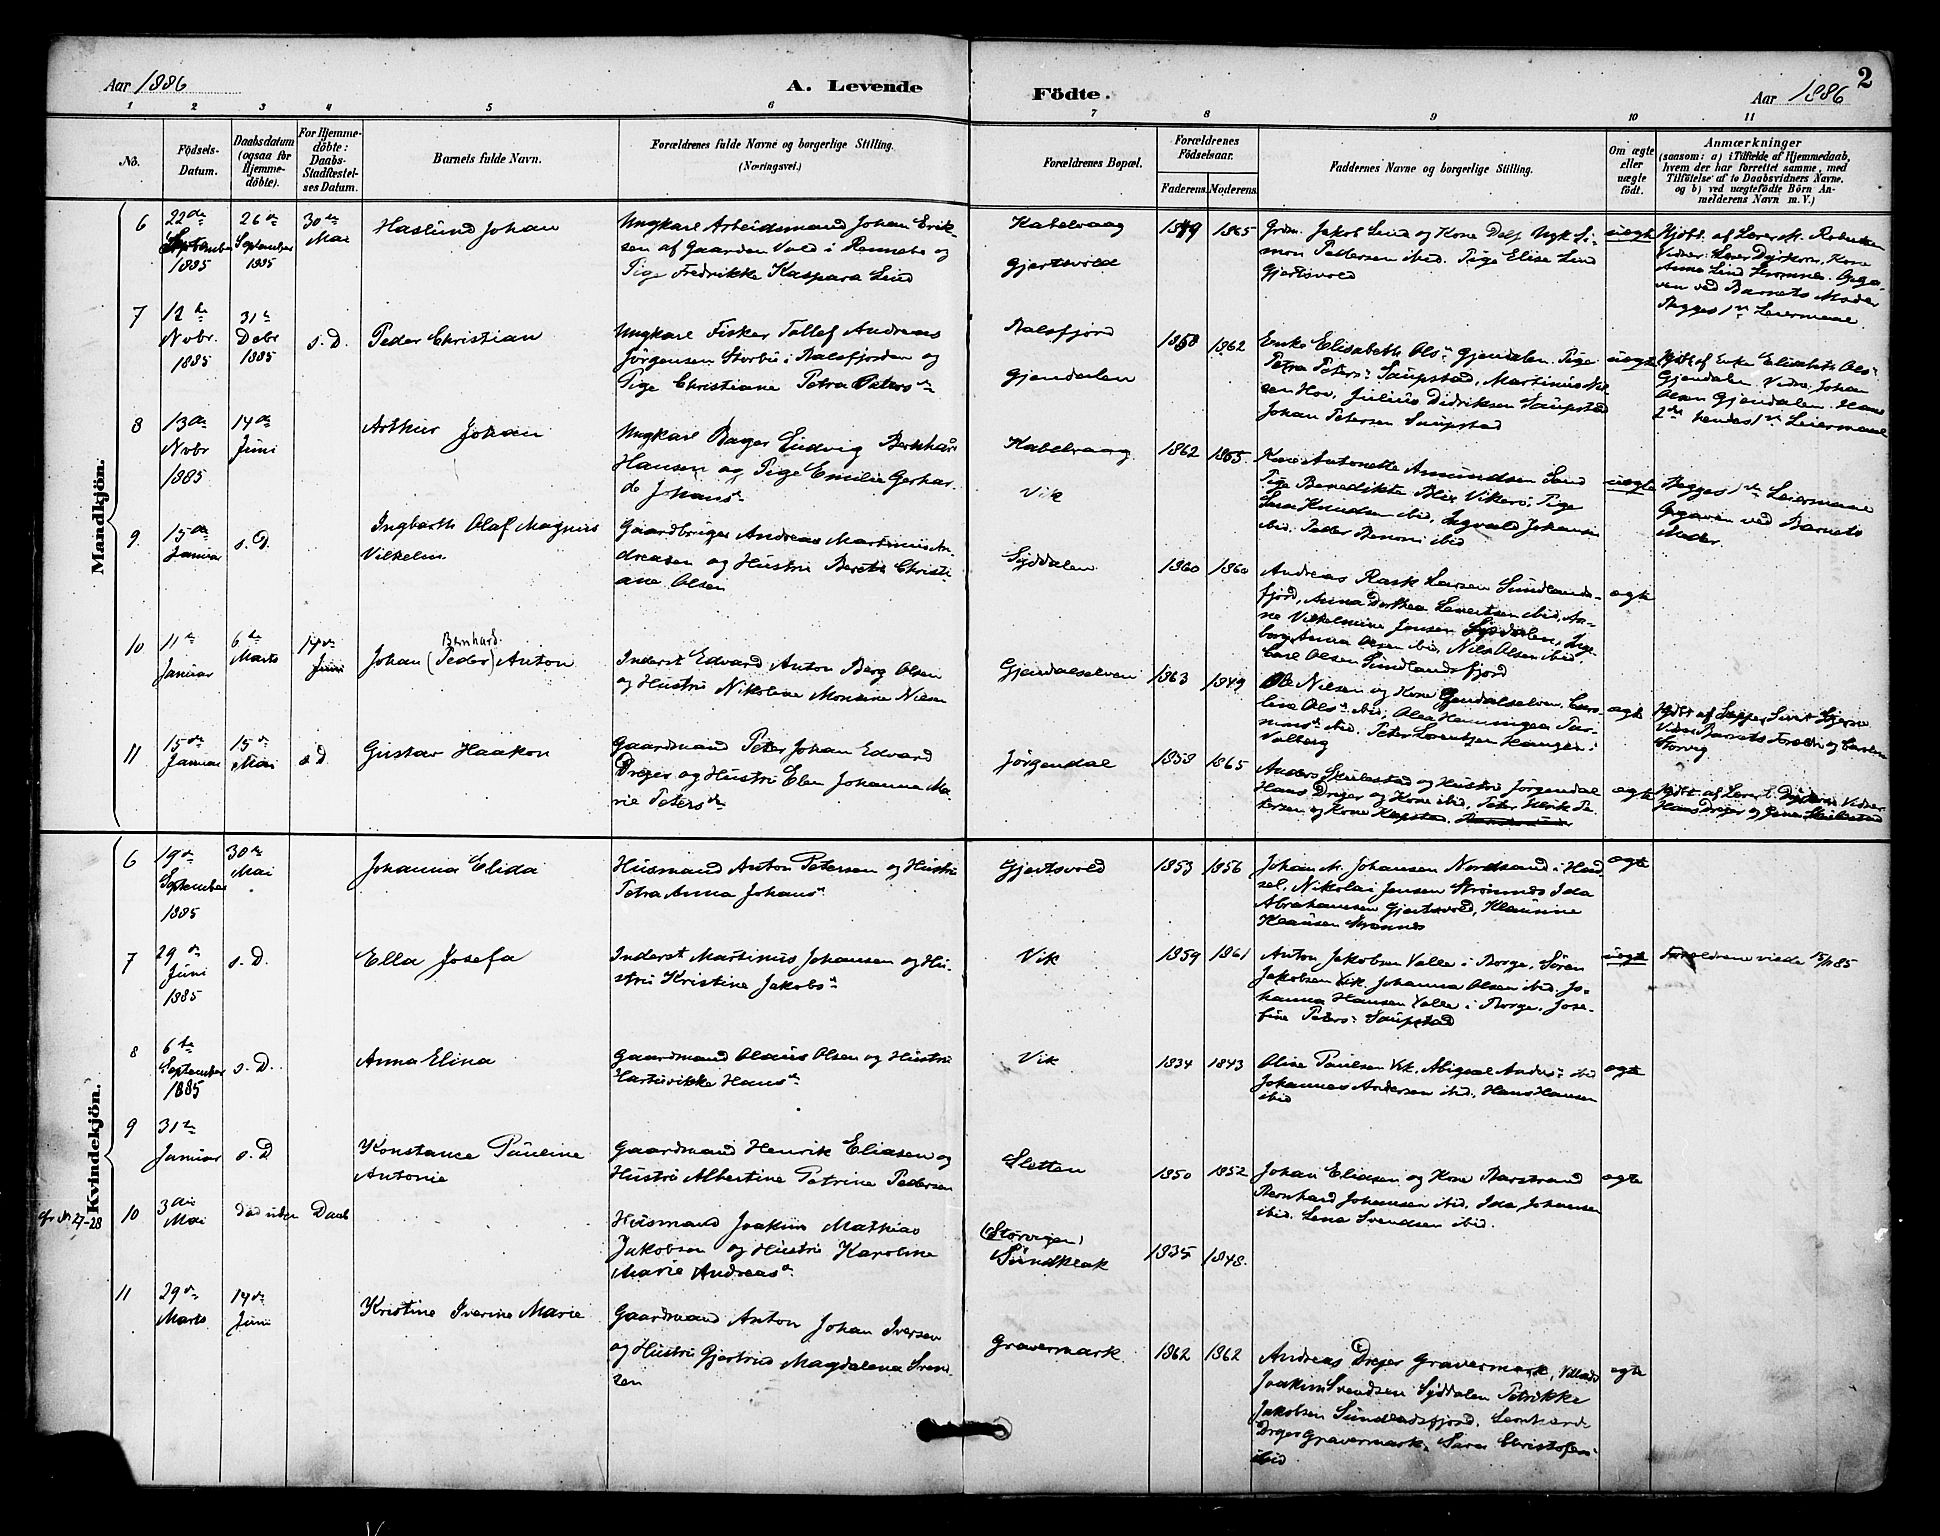 Aar 1886
A. Levende
Födte.
Aar 1886
2
1 2 3 4 5 6 7 8 9 10 11
No.
Födsels-
Datum.
Daabsdatum
(ogsaa for
Hjemme-
döbte).
For Hjemme-
döbte:
Daabs-
Stadfæstel-
ses Datum.
Barnets fulde Navn.
Forældrenes fulde Navne og borgerlige Stilling.
(Næringsvei.)
Forældrenes Bopæl.
Forældrenes
Födselsaar.
Faderens. Moderens.
Faddernes Navne og borgerlige Stilling.
Om ægte
eller
uægte
födt.
Anmærkninger
(saasom: a) i Tilfælde af Hjemmedaab,
hvem der har forrettet samme, med
Tilföielse af to Daabsvidners Navne,
og b) ved uægtefödte Börn An-
melderens Navn m. V.)
Mandkjön.
6
22de
September
1885
26de
September
1885
30te
Mai
Haslund Johan
Ungkarl Arbeidsmand Johan Erik-
sen af Gaarden Vold i Rennebo og
Pige Fredrikke Kaspara Lind
Kabelvaag
Gjertsvold
1849 1865
Grdm. Jakob Lind og Kone Dels. Ugk Si-
mon Pedersen ibid. Pige Elise Lind
Gjertsvold
uægte
Hjdbt. af Lærer
Anna Lind
ven ved Barnets Moder
Begges 1ste Leiermaal.
7
12te
Novbr.
1885
31te
Debr
1885
s. D.
Peder Christian
Ungkarl Fisker Tollef Andreas
Jörgensen Storbö i Balsfjorden og
Pige Christiane Petra Petersdr
Balsfjord
Gjendalen
1858 1862
Enke Elisabeth Olsdr Gjendalen. Pige
Petra Petersdr Saupstad, Martinus Nil-
sen Hov, Julius Didriksen Saupstad
Johan Petersen Saupstad
uægte
Hjdbt. af Enke Elisabeth Olsdr
Gjendalen. Vidne: Johan
Olsen Gjendalen. Hans
2det hendes 1ste Leiermaal
8
13de
Novbr
1885
14de
Juni
Arthur Johan
Ungkarl Bager Ludvig Bernhard
Hansen og Pige Emilie Gerhar-
da Johansdr
Kabelvaag
Vik
1862 1865.
Kone Antonette Amundsen Sand
Pige Benedikte Blix Vikerö, Pige
Sara Knudsen ibid, Ingvald Johansen
ibid. Peder Benoni ibid
uægte
Begges 1ste Leiermaal
Opgaven ved Barnets
Moder.
9
15de
Januar
s. D.
Ingbarth Olaf Magnus
Vilhelm
Gaardbruger Andreas Martinus An-
dreasen og Hustru Berethe Christi-
ane Olsen
Syddalen
1860 1860
Andreas Rask Larsen Sundlands-
fjord, Anna Dorthea Levertsen ibid, An-
ne Vilhelmine Jensen Syddalen, Inge-
borg Anna Olsen ibid, Nils Olsen ibid.
Carl Olsen Sundlandsfjord
ægte
10
11te
Januar
6te
Marts
14de
Juni
Bernhard
Johan (Peder) Anton
Inderst Edvard Anton Berg Olsen
og Hustru Nikoline Monsine Nilsen
Gjendalselven
1863 1849
Ole Nilsen og Kone Gjendalselven. Caro-
line Olsdr ibid, Olea Henningea Ras-
musdr ibid. Peter Lorentzen Hangen i
Valberg
ægte
Hjdbt. af
Vidne Barnets Forældre og
Storvig
11
15de
Januar
15de
Mai
s. D
Gustav Haakon
Gaardmand Peter Johan Edvard
Dreyer og Hustru Elen Johanna Ma-
rie Petersdr
Jörgendal
1858 1865
Anders Skulestad og Hustru Jörgendal
Hans Dreyer og Kone ibid, Peter Idrik Pe-
tersen og Kone Kapstad.
ægte
Hjdbt. af Lærer Vidner
Hans Dreyer og
Kvindekjön.
6
19de
September
1885
30te
Mai
Johanna Elida
Husmand Anton Petersen og Hustru
Petra Anna Johansdr
Gjertsvold
1853 1856
Johan M. Johansen Nordsand i Had-
sel, Nikolai Jensen Strömnes Ida
Abrahamsen Gjertsvold, Klausine
Klausen Strömnes
ægte
7
29de
Juni
1885
s. D.
Ella Josefa
Inderst Martinus Johansen og Hu-
stru Kristine Jakobsdr
Vik
1859 1861
Anton Jakobsen Valle i Borge, Sören
Jakobsen Vik. Johanna Olsen ibid. Jo-
hanna Hansen Valle i Borge, Jose-
fine Petersdr Saupstad
uægte
Forældrene viede
8
6te
September
1885
s. D.
Anna Elina
Gaardmand Olaus Olsen og Hustru
Hartvikke Hansdr
Vik
1834 1843
Oline Paulsen Vik. Abigael Andersdr ibid
Johannes Andersen ibid. Hans Hansen
ibid
ægte
9
31te
Januar
s. D
Konstance Pauline
Antonie
Gaardmand Henrik Eliasen og
Hustru Albertine Petrine Pedersen
Sletten
1850 1852
Johan Eliasen og Kone Barstrand
Bernhard Johansen ibid. Ida Johansen
ibid. Lena Svendsen ibid.
ægte
cfr. No 27-28
10
3die
Mai
Död uden Daab
Husmand Joakim Mathias
Jakobsen og Hustru Karoline
Marie Andreasdr
(Storvigen)
Sundklak
1835 1848.
11
29de
Marts
14de
Juni
Kristine Iverine Marie
Gaardmand Anton Johan Iversen
og Hustru Gjertrud Magdalena Svend-
sen
Gravermark
1862 1862
Andreas Dreyer Gravermark, Villads
Joakim Svendsen Syddalen Petrikke
Jakobsen Sundlandsfjord. Leonhard
Dreyer Gravermark. Sara Christofersen
ibid
ægte